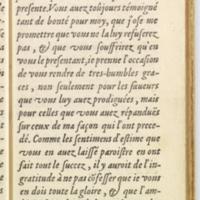 presente. Vous auez tousjours témoigné
tant de bonté pour moy, que j'ose me
promettre que vous ne la luy refuserez
pas, & que vous souffrirez qu'en
vous le presentant, je prenne l'occasion
de vous rendre de tres-humbles gra-
ces, non seulement pour les faueurs
que vous luy auez prodiguées, mais
pour celles que vous auez répanduës
sur ceux de ma façon qui l'ont prece-
dé. Comme les sentimens d'estime que
vous en auez laissé paroistre en ont
fait tout le succez, il y auroit de l'in-
gratitude à ne pas cõfesser que ie vous
en dois toute la gloire, & que l'am-